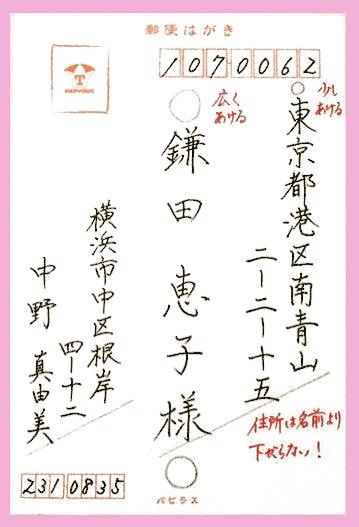 郵便はがき
1070062
少しあける
東京都港区南青山
二ー二ー十五
広くあける
鎌田恵子様
住所は名前より
下がらない!
横浜市中区根岸
四ー十二
中野 真由美
2310835
パピラス